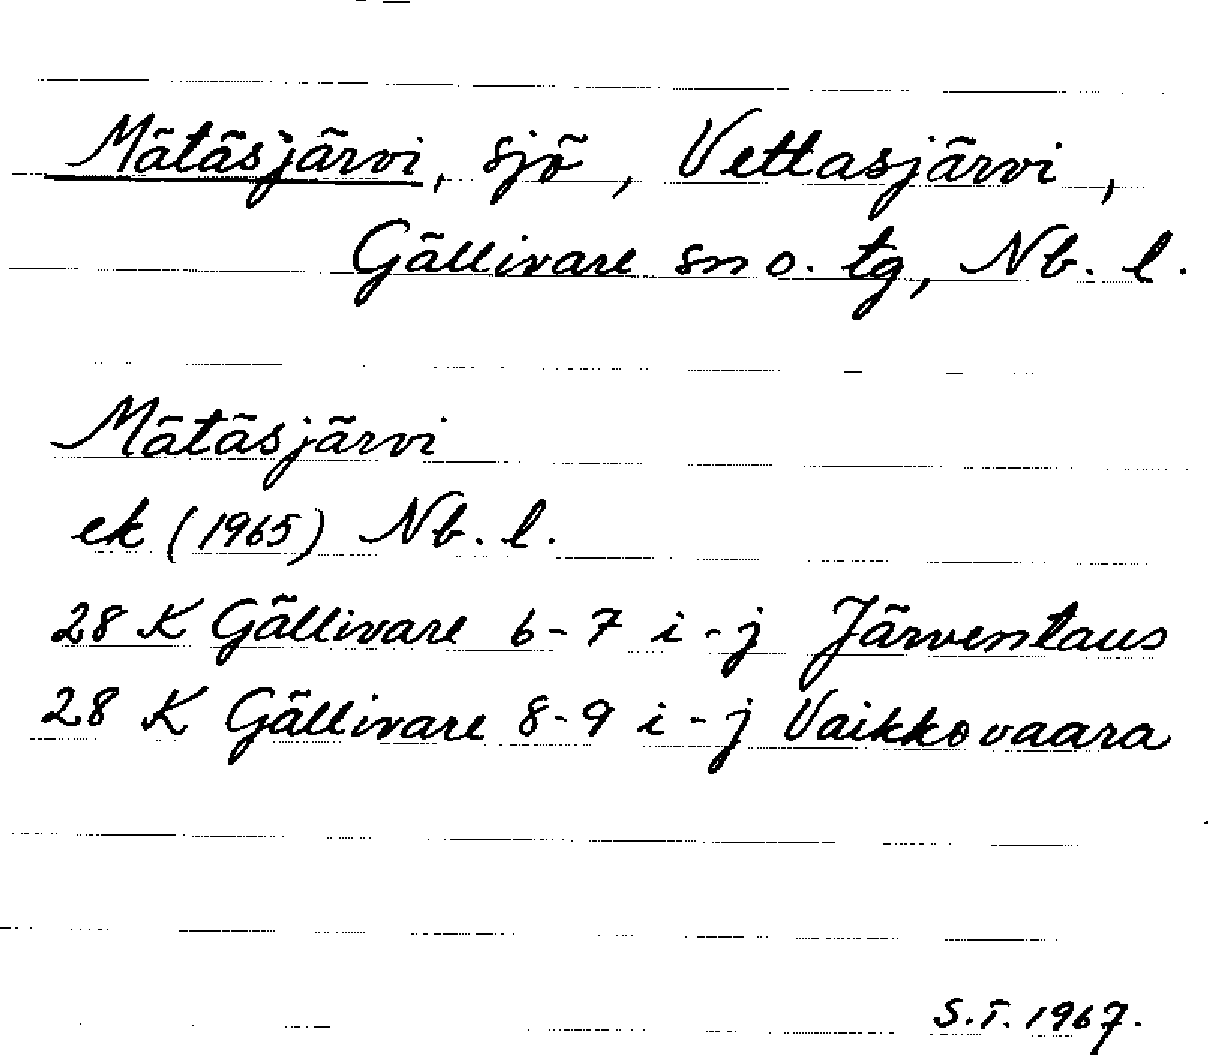 Mätäsjärvi, sjö, Vettasjärvi,
Gällivare sn o. tg, Nb. l.
Mätäsjärvi
ek (1965) Nb. l.
28 K Gällivare 6-7 i-j Järventaus
28 K Gällivare 8-9 i-j Vaikkovaara
S.T. 1967.